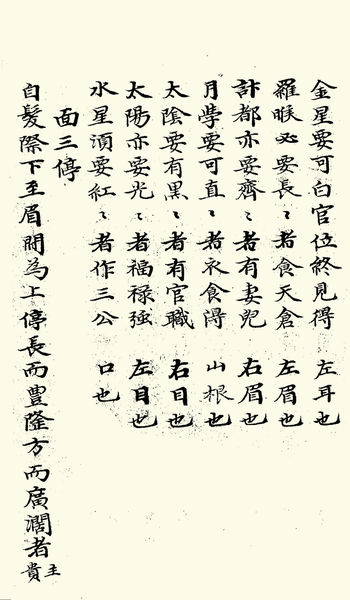 金星要可白官位終見得　左耳也
羅睺必要長〻者食天倉　左眉也
計都亦要齊〻者有妻兒　右眉也
月孛要可直〻者衣食淂　山根也
太陰要有黒〻者有官職　右目也
太陽亦要光〻者福禄強　左目也
水星湏要紅〻者作三公　口也
面三停
自髮際下至眉間為上停長而豊隆方而廣濶者主貴